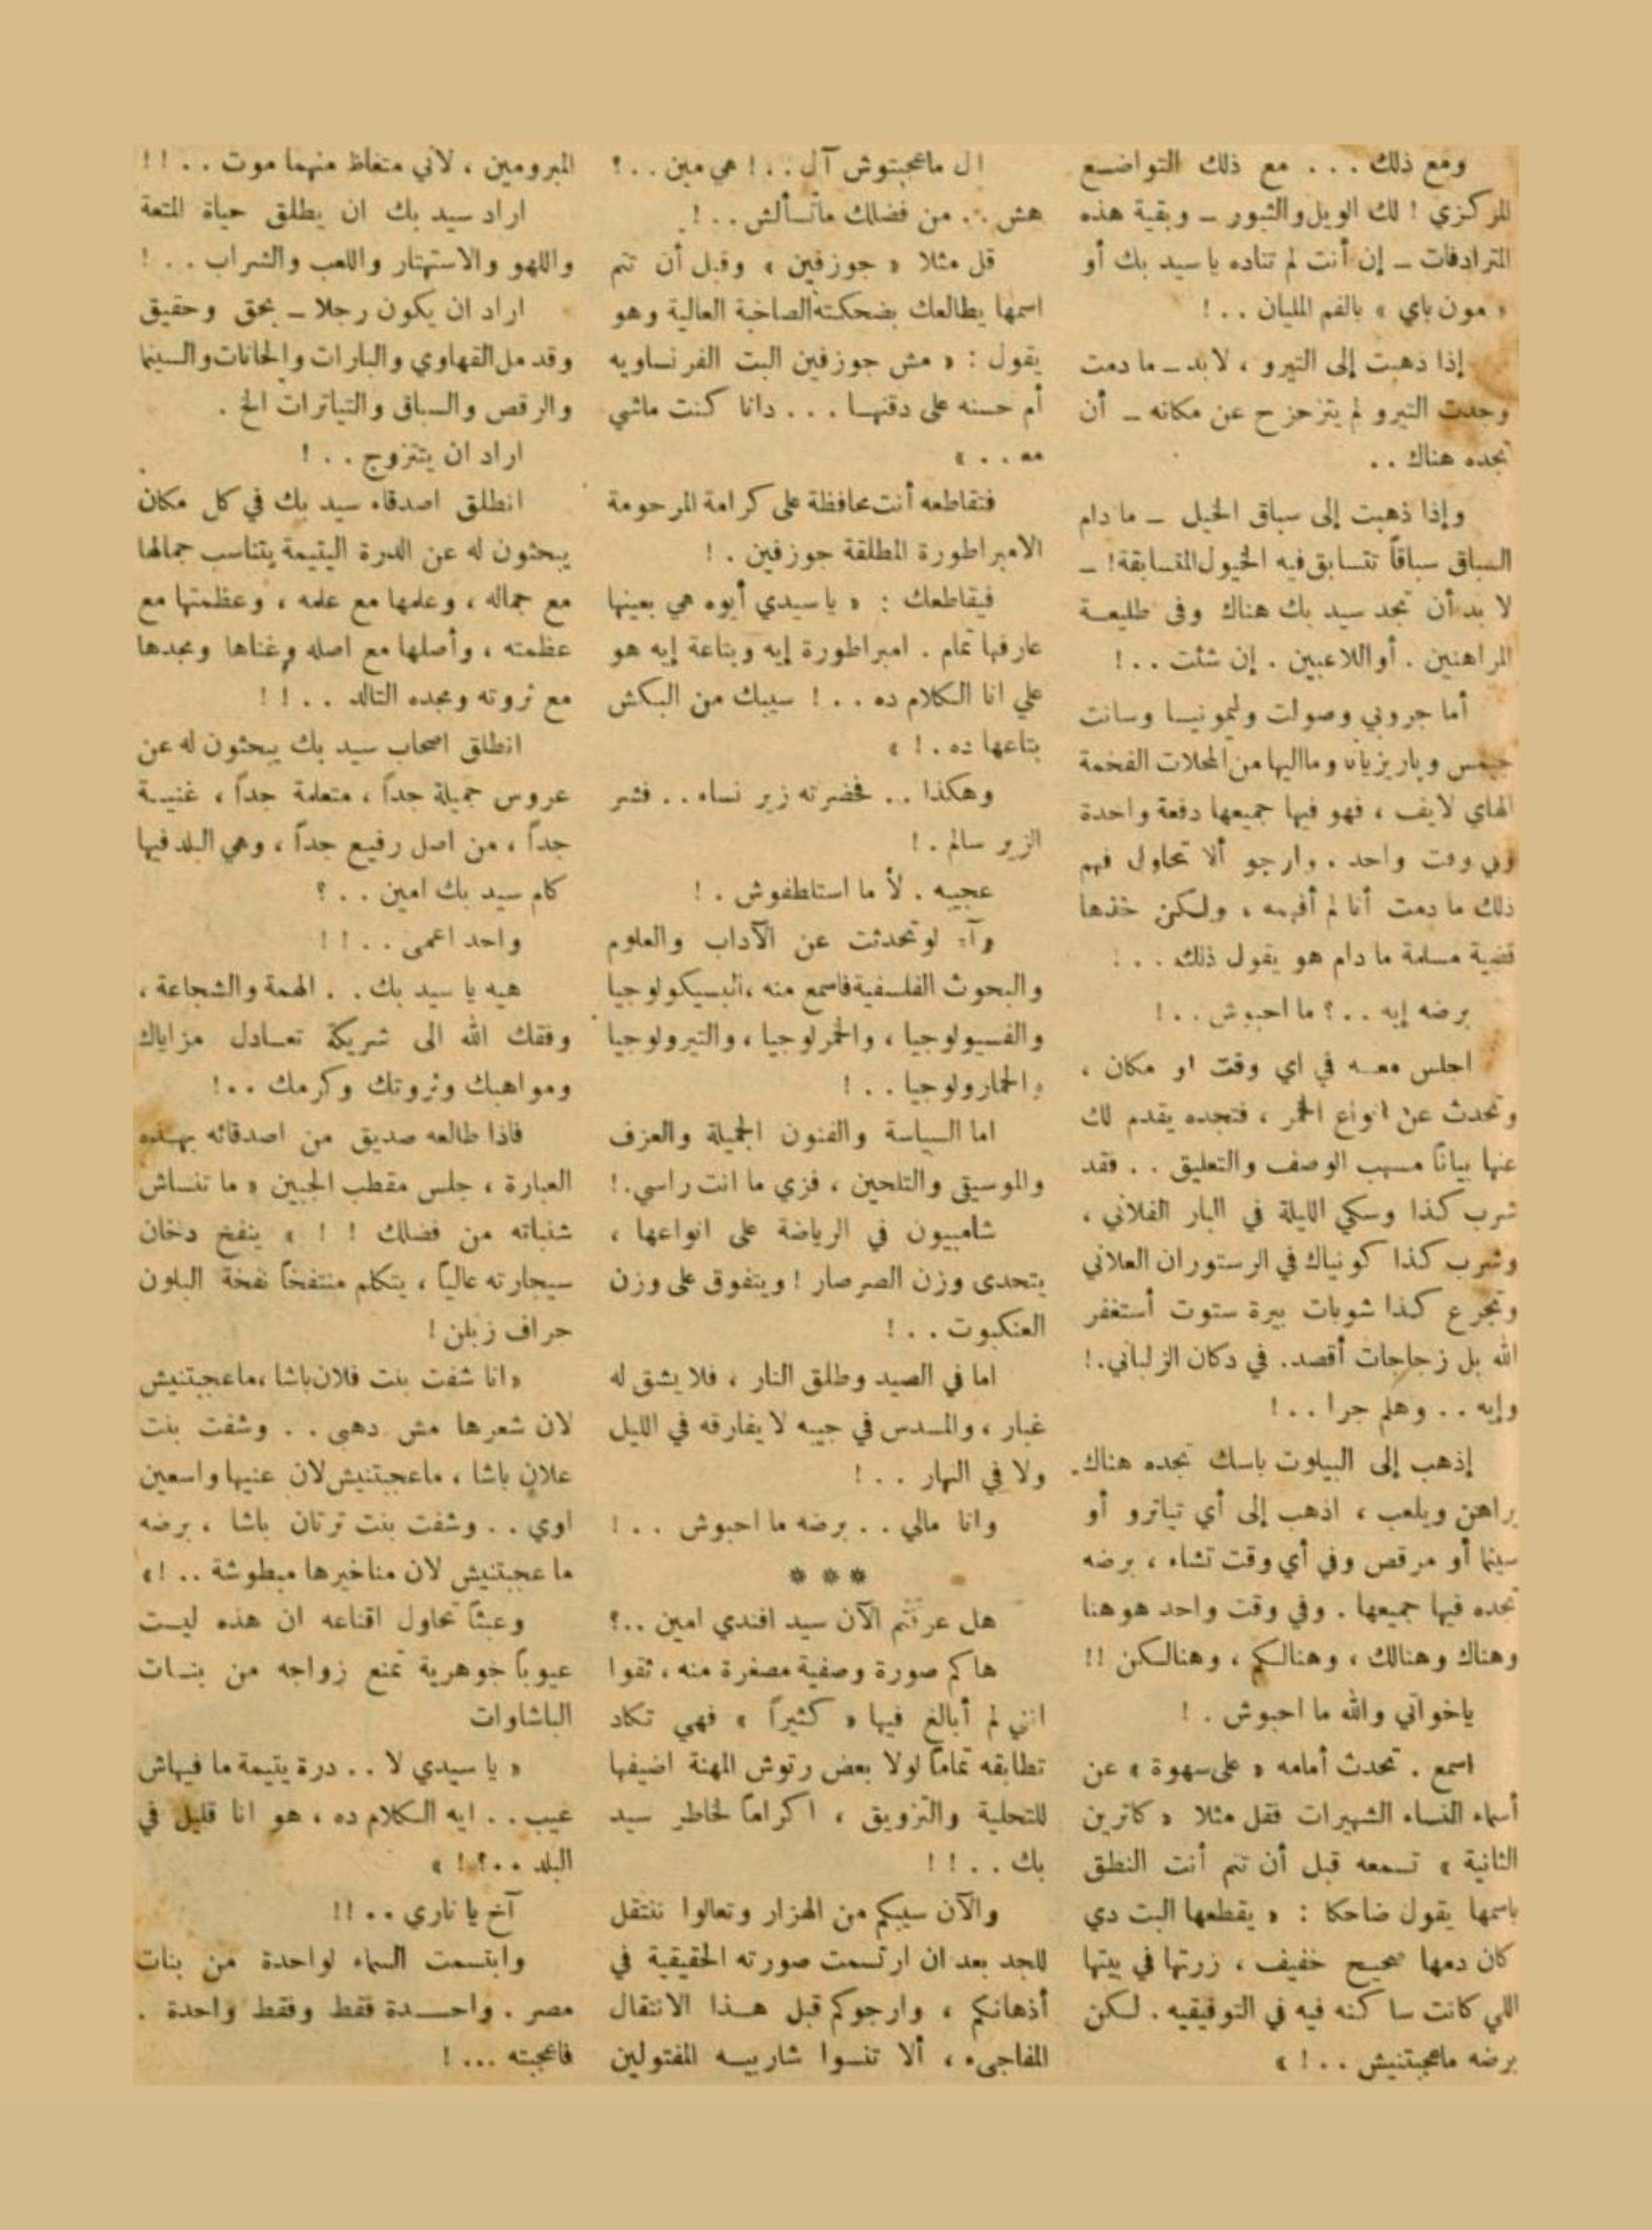 ومع ذلك . . . مع ذلك التواضع
المركزي ! لك الويل والثبور ــ وبقية هذه
المترادفات ــ إن أنت لم تناده يا سيد بك أو
« مون باي » بالفم المليان . . !
إذا ذهبت إلى التيرو ، لا بد ــ ما دمت
وجدت التيرو لم يتزحزح عن مكانه ــ أن
تجده هناك . .
وإذا ذهبت إلى سباق الخيل ــ ما دام
السباق سباقاً تتسابق فيه الخيول المتسابقة ! ــ
لا بد أن تجد سيد بك هناك وفى طليعة
المراهنين . أو اللاعبين . إن شئت . . !
أما جروبي وصولت وليمونيا وسانت
جيمس وباريزيانا وما اليها من المحلات الفخمة
الهاي لايف ، فهو فيها جميعها دفعة واحدة
وفي وقت واحد . وارجو ألا تحاول فهم
ذلك ما دمت أنا لم أفهمه ، ولكن خذها
قضية مسلمة ما دام هو يقول ذلك . . . !
برضه إيه . . ؟ ما احبوش . . !
اجلس معه في اي وقت او مكان ،
وتحدث عن انواع الخمر ، فتجده يقدم لك
عنها بيانًا مسهب الوصف والتعليق . . فقد
شرب كذا وسكي الليلة في البار الفلاني ،
وشرب كذا كونياك في الرستوران العلاني
وتجرع كذا شوبات بيرة ستوت أستغفر
الله بل زجاجات أقصد. في دكان الزلباني . !
وإيه . . وهلم جرا . . !
إذهب إلى البيلوت باسك تجده هناك .
يراهن ويلعب ، اذهب إلى أي تياترو أو
سينما أو مرقص وفي أي وقت تشاء ، برضه
تجده فيها جميعها . وفي وقت واحد هو هنا
وهناك وهنالك ، وهنالكم ، وهنالكن !!
ياخواتي والله ما احبوش . !
اسمع . تحدث أمامه « على سهوة » عن
أسماء النساء الشهيرات فقل مثلا « كاترين
الثانية » تسمعه قبل أن تتم أنت النطق
باسمها يقول ضاحكا : « يقطعها البت دي
كان دمها صحيح خفيف ، زرتها في بيتها
اللي كانت ساكنه فيه في التوفيقيه . لكن
برضه ماعجبتنيش . . ! »
ال ماعجبتوش آل . . ! هي مين . . ؟
هش . . من فضلك ماتسألش . . !
قل مثلا « جوزفين » وقبل أن تتم
اسمها يطالعك بضحكته الصاخبة العالية وهو
يقول : « مش جوزفين البت الفرنساويه
أم حسنه على دقنها . . . دانا كنت ماشي
معه . . »
فتقاطعه أنت محافظة على كرامة المرحومة
الامبراطورة المطلقة جوزفين . !
فيقاطعك : « يا سيدي أيوه هي بعينها
عارفها تمام . امبراطورة إيه وبتاعة إيه هو
علي انا الكلام ده . . ! سيبك من البكش
بتاعها ده . ! »
وهكذا . . فحضرته زير نساء . . فشر
الزير سالم . !
عجبيه . لأ ما استلطفوش . !
وآه لو تحدثت عن الآداب والعلوم
والبحوث الفلسفية فاسمع منه ، البسيكولوجيا
والفسيولوجيا ، والخمرلوجيا ، والتيرولوجيا
والخمارولوجيا . . !
اما السياسة والفنون الجميلة والعزف
والموسيقى والتلحين ، فزي ما انت راسي . !
شامبيون في الرياضة على انواعها ،
يتحدى وزن الصرصار ! ويتفوق على وزن
العنكبوت . . !
اما في الصيد وطلق النار ، فلا يشق له
غبار ، والمسدس في جيبه لا يفارقه في الليل
ولا في النهار . . !
وانا مالي . . برضه ما احبوش . . !
* * *
هل عرفتم الآن سيد افندي امين . . ؟
هاكم صورة وصفية مصغرة منه ، ثقوا
انني لم أبالغ فيها « كثيراً » فهي تكاد
تطابقه تماماً لولا بعض رتوش المهنة اضيفها
للتحلية والتزويق ، اكراماً لخاطر سيد
بك . . ! !
والآن سيبكم من الهزار وتعالوا ننتقل
للجد بعد ان ارتسمت صورته الحقيقية في
أذهانكم ، وارجوكم قبل هذا الانتقال
المفاجىء ، ألا تنسوا شاربيه المفتولين
المبرومين ، لاني متغاظ منهما موت . . ! !
اراد سيد بك ان يطلق حياة المتعة
واللهو والاستهتار واللعب والشراب . . !
اراد ان يكون رجلا ــ بحق وحقيق
وقد مل القهاوي والبارات والحانات والسينما
والرقص والسباق والتياترات الخ .
اراد ان يتزوج . . !
انطلق اصدقاء سيد بك في كل مكان
يبحثون له عن الدرة اليتيمة يتناسب جمالها
مع جماله ، وعلمها مع علمه ، وعظمتها مع
عظمته ، وأصلها مع اصله وغناها ومجدها
مع ثروته ومجده التالد . . ! !
انطلق اصحاب سيد بك يبحثون له عن
عروس جميلة جداً ، متعلمة جداً ، غنية
جداً ، من اصل رفيع جداً ، وهي البلد فيها
كام سيد بك امين . . ؟
واحد اعمى . . ! !
هيه يا سيد بك . . الهمة والشجاعة ،
وفقك الله الى شريكة تعادل مزاياك
ومواهبك وثروتك وكرمك . . !
فاذا طالعه صديق من اصدقائه بهذه
العبارة ، جلس مقطب الجبين « ما تنساش
شنباته من فضلك ! ! » ينفخ دخان
سيجارته عالياً ، يتكلم منتفخاً نفخة البلون
جراف زبلن !
« انا شفت بنت فلان باشا ، ماعجبتنيش
لان شعرها مش دهبى . . وشفت بنت
علان باشا ، ماعجبتنيش لان عنيها واسعين
اوي . . وشفت بنت ترتان باشا ، برضه
ما عجبتنيش لان مناخيرها مبطوشة . . ! »
وعبثاً تحاول اقناعه ان هذه ليست
عيوباً جوهرية تمنع زواجه من بنات
الباشاوات
« يا سيدي لا . . درة يتيمة ما فيهاش
عيب . . ايه الكلام ده ، هو انا قليل في
البلد . . ؟ ! »
آخ يا ناري . . !!
وابتسمت السماء لواحدة من بنات
مصر . واحدة فقط وفقط واحدة .
فاعجبته ... !